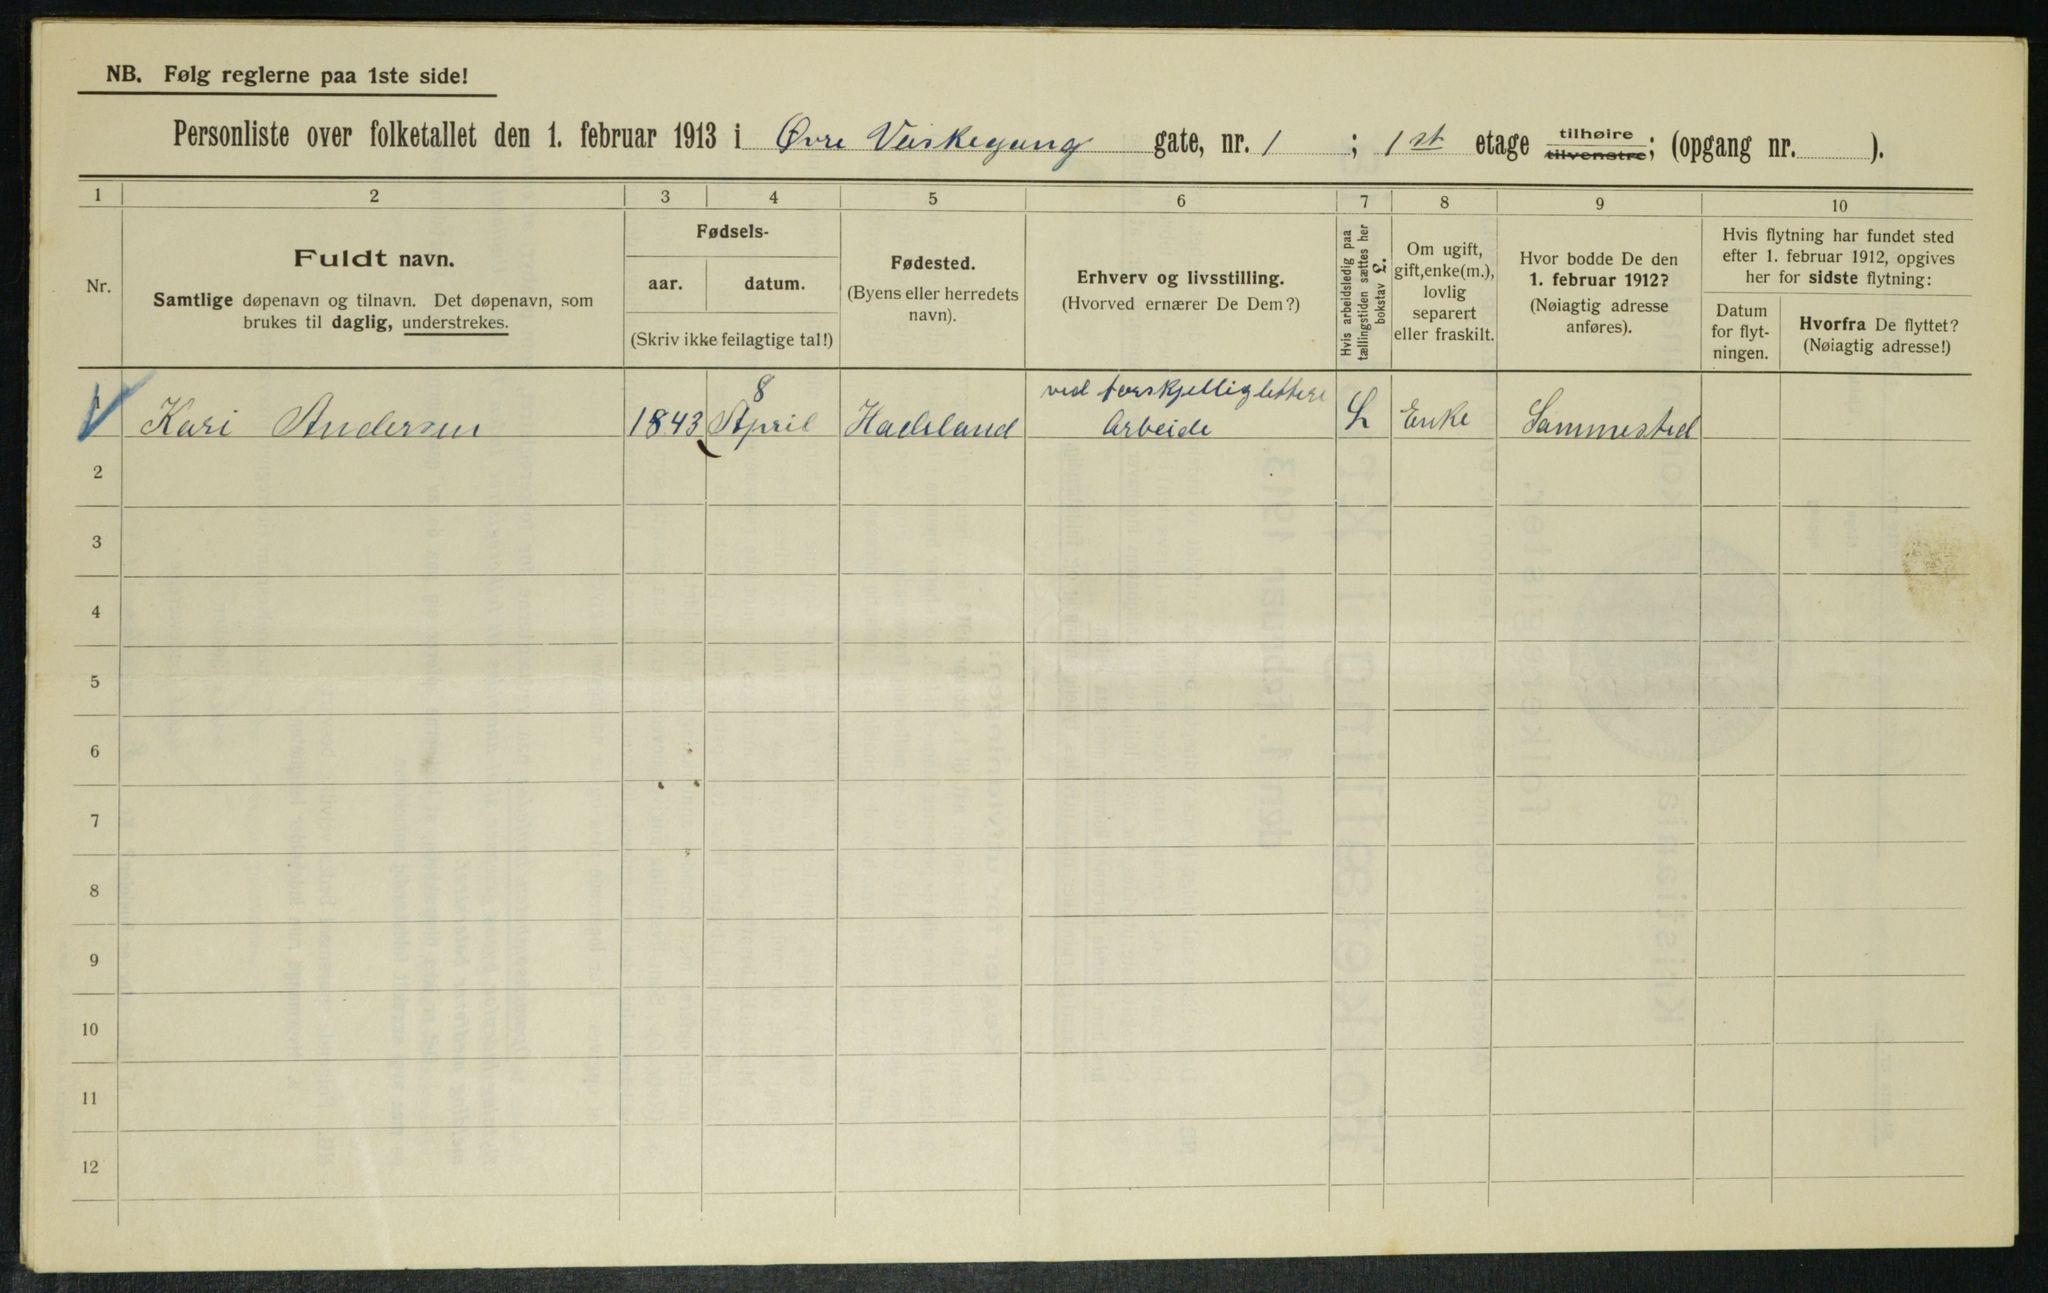 NB. Følg reglerne paa 1ste side!
Personliste over folketallet den 1. februar 1913 i Øvre Vaskegang gate, nr. 1 ; 1st etage tilhøire tilvenstre; (opgang nr. ).
1 2 3 4 5 6 7 8 9 10
Nr.
Fuldt navn.
Samtlige døpenavn og tilnavn. Det døpenavn, som
brukes til daglig, understrekes.
Fødsels-
aar. datum.
(Skriv ikke feilagtige tal!)
Fødested.
(Byens eller herredets
navn).
Erhverv og livsstilling.
(Hvorved ernærer De Dem?)
Hvis arbeidsledig paa
tællingstiden sættes her
bokstav L.
Om ugift,
gift, enke(m.),
lovlig
separert
eller fraskilt.
Hvor bodde De den
1. februar 1912?
(Nøiagtig adresse
anføres).
Hvis flytning har fundet sted
efter 1. februar 1912, opgives
her for sidste flytning:
Datum
for flyt-
ningen.
Hvorfra De flyttet?
(Nøiagtig adresse!)
1 Kari Andersen 1843 8 April Hadeland ved forskjellig lettere Arbeide L Enke Sammested
2
3
4
5
6
7
8
9
10
11
12